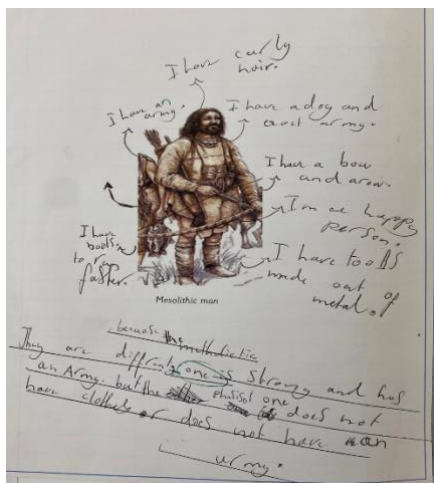 I have curly
hair.
I have an
army.
I have a dog and
army.
I have a bow
and arow.
I'm a happy
person.
I have
boots
to run
faster.
I have toolls
made out of
metal.
Mesolithic man
because the
They are diffrant one is strong and has
an Army. but the one does not
have cloths or does not have an
urmy.